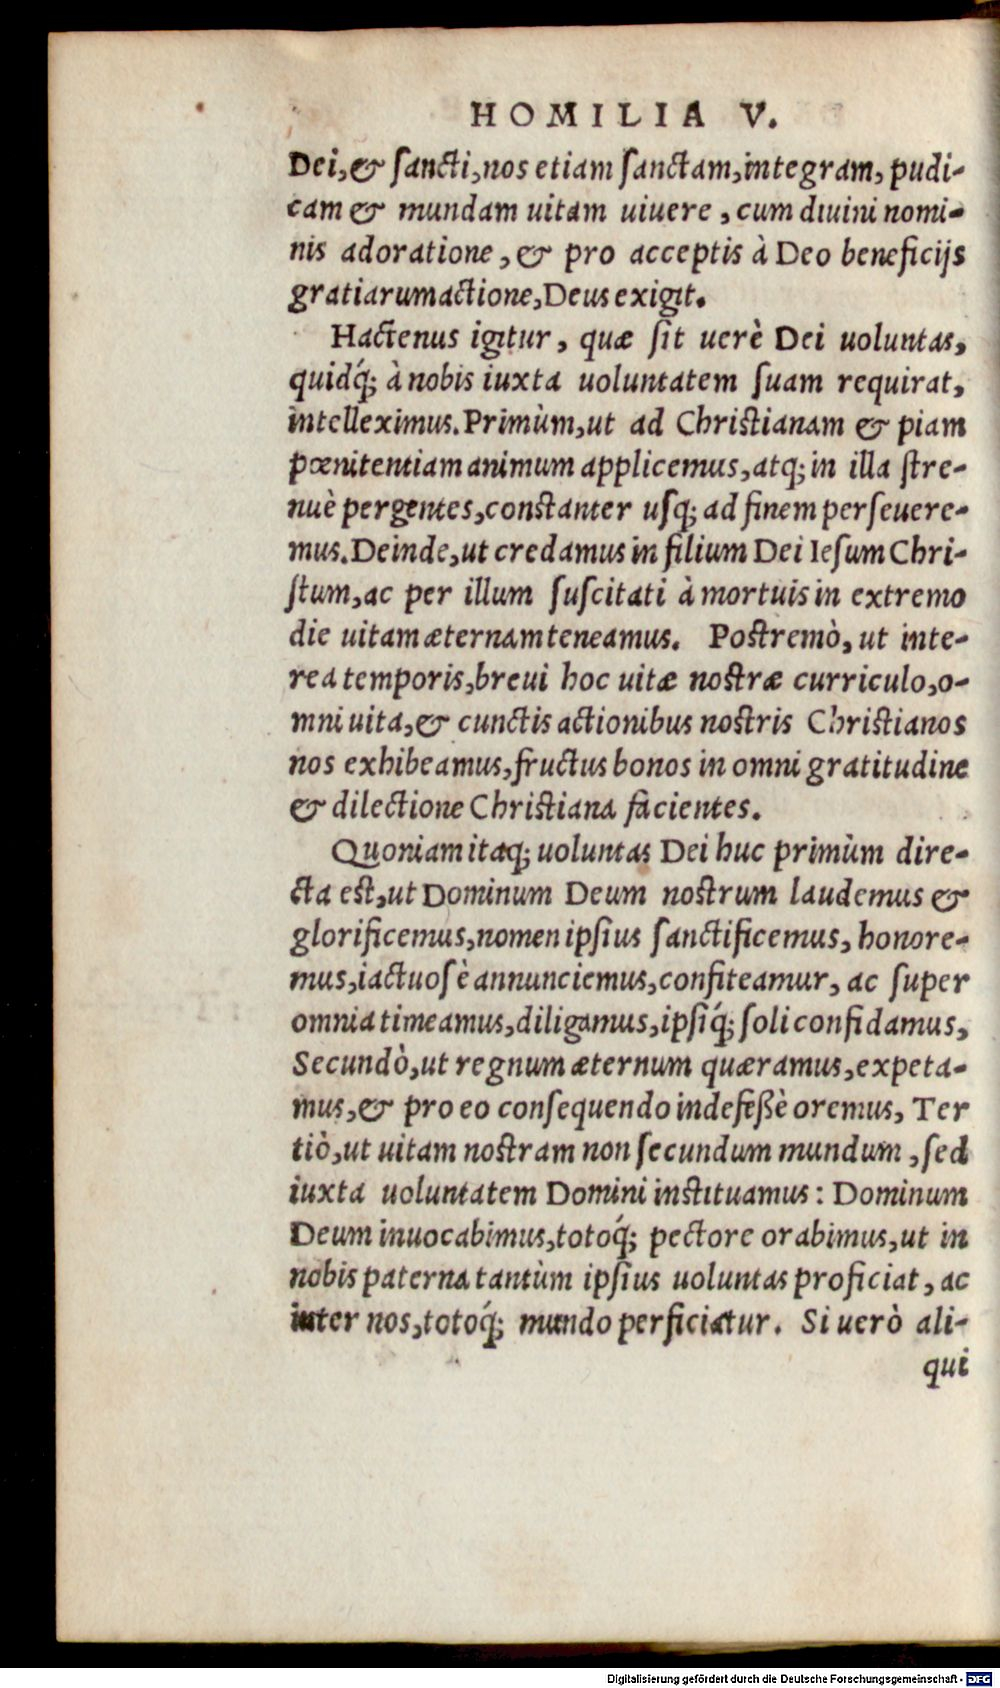 HOMILIA V.
Dei, & ſancti, nos etiam ſanctam, integram, pudi-
cam & mundam uitam uiuere, cum diuini nomi-
nis adoratione, & pro acceptis à Deo beneficijs
gratiarumactione, Deus exigit.
Hactenus igitur, quæ ſit uerè Dei uoluntas,
quidq́; à nobis iuxta uoluntatem ſuam requirat,
intelleximus. Primùm, ut ad Chriſtianam & piam
pœnitentiam animum applicemus, atq; in illa ſtre-
nuè pergentes, conſtanter uſq; ad finem perſeuere-
mus. Deinde, ut credamus in filium Dei Ieſum Chri-
ſtum, ac per illum ſuſcitati à mortuis in extremo
die uitam æternam teneamus. Poſtremò, ut inte-
rea temporis, breui hoc uitæ noſtræ curriculo, o-
mni uita, & cunctis actionibus noſtris Chriſtianos
nos exhibeamus, fructus bonos in omni gratitudine
& dilectione Chriſtiana facientes.
Quoniam itaq; uoluntas Dei huc primùm dire-
cta eſt, ut Dominum Deum noſtrum laudemus &
glorificemus, nomen ipſius ſanctificemus, honore-
mus, iactuoſè annunciemus, confiteamur, ac ſuper
omnia timeamus, diligamus, ipſiq́; ſoli confidamus,
Secundò, ut regnum æternum quæramus, expeta-
mus, & pro eo conſequendo indefeßè oremus, Ter
tiò, ut uitam noſtram non ſecundum mundum, ſed
iuxta uoluntatem Domini inſtituamus: Dominum
Deum inuocabimus, totoq́; pectore orabimus, ut in
nobis paterna tantùm ipſius uoluntas proficiat, ac
inter nos, totoq́; mundo perficiatur. Si uerò ali-
qui
Digitalisierung gefördert durch die Deutsche Forschungsgemeinschaft - DFG